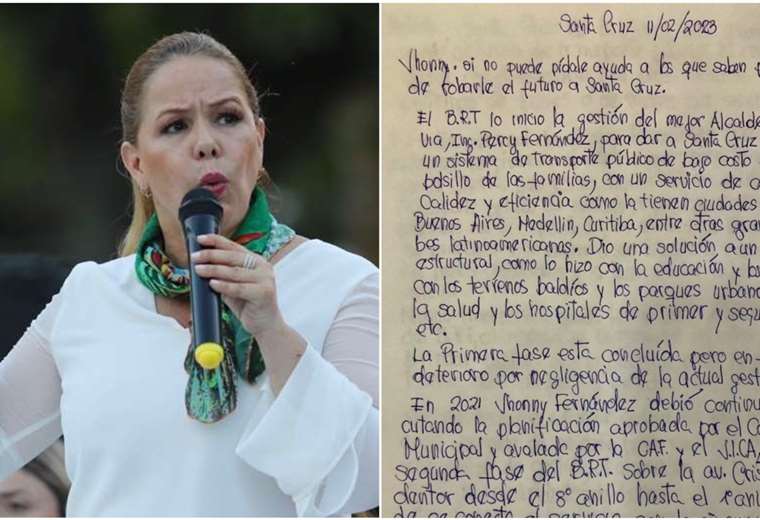 Santa Cruz 11/02/2023
Jhonny. si no puede pídale ayuda a los que saben
de tobarle el futuro a Santa Cruz.
El B.R.T lo inicio la gestión del mejor Alcalde
Via, Ing. Percy Fernández, para dar a Santa Cruz
un sistema de transporte público de bajo costo
bolsillo de las familias, con un servicio de
Calidez y eficiencia como la tienen ciudades
Buenos Aires, Medellin, Curitiba, entre otras gran
bes latinoamericanas. Dio una solución a un
estructural, como lo hizo con la educación y los
con los terrenos baldíos y los parques urban
la salud y los hospitales de primer y segu
etc.
La Primera fase esta concluída pero en
deterioro por negligencia de la actual gest
En 2021 Jhonny Fernández debió continu
cutando la planificación aprobada por el Co
Municipal y avalada por la CAF. y el J.I.CA,
segunda fase del B.R.T. Sobre la av. Cris
dentor desde el 8º anillo hasta el